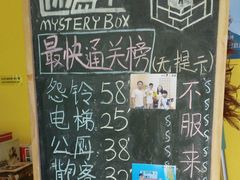 MYSTERY BOX
最快通关榜(无提示)
怨铃:58
电梯:25
公厕:38
背包客:32
不服来